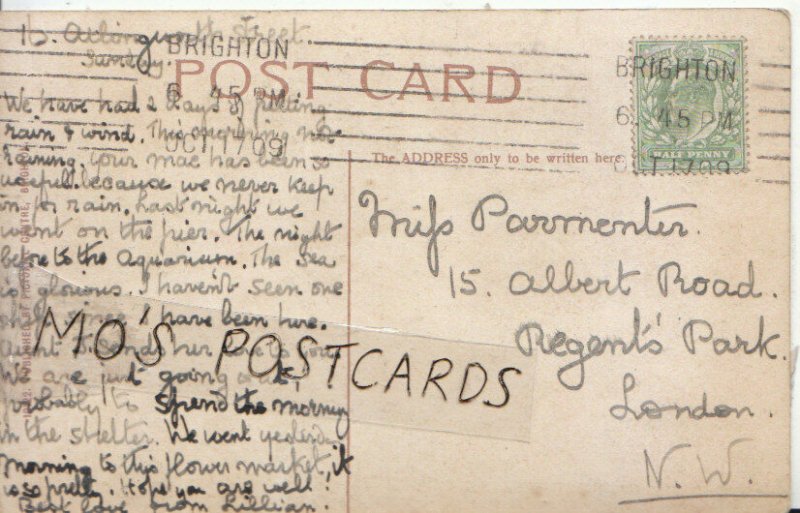 15. Atlingworth Street.
Sunday.
We have had 2 days of pelting
rain & wind. This morning no
raining. Your mac has been so
useful. because we never keep
in for rain. Last night we
went on the pier. The night
before to the Aquarium. The sea
is glorious. I haven't seen one
since I have been here.
Aunt sends her love to you.
We are just going out,
probably to spend the morning
in the shelter. We went yesterday
morning to this flower market, it
is so pretty. Hope you are well!
Best love from Lillian.
POST CARD
The ADDRESS only to be written here.
BRIGHTON
6 45 PM
OCT 17 09
BRIGHTON
6 45 PM
OCT 17 09
HALFPENNY
Miss Parmenter.
15. Albert Road.
Regent's Park.
London.
N.W.
MO'S POSTCARDS